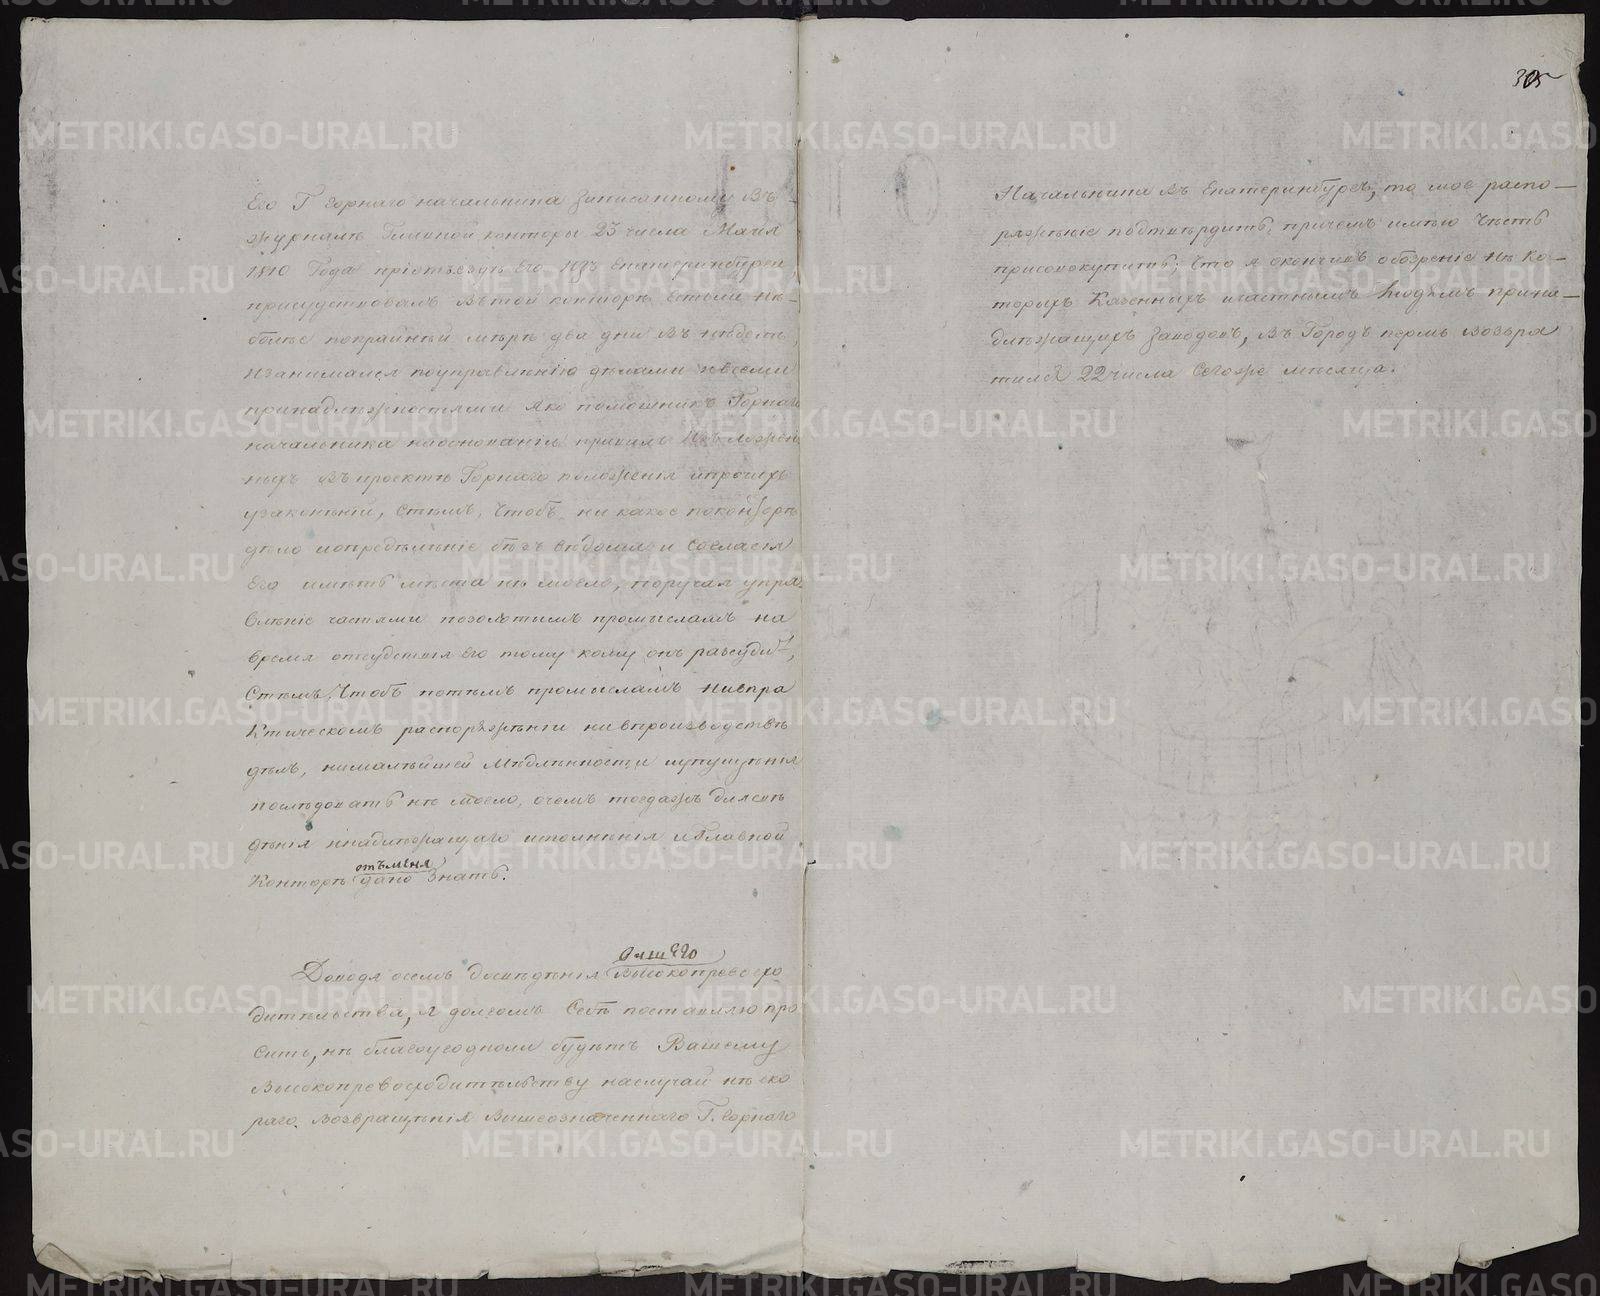 Его Г горнаго начальника записанному въ
журналъ Главной конторы 23 числа Маия
1810 Года приотъездѣ его изъ Екатеринбурга,
присудствовалъ вътой конторѣ естьли не-
более покрайней мѣрѣ два дни въ неделю,
изанимался поуправлению дѣлами ивсеми
принадлежностями яко помощникъ Горнаго
начальника наосновании правилъ изъложен
ныхъ въпроектѣ Горнаго положения ипрочихъ
узаконений, стемъ, чтобъ ни какое поконторѣ
дѣло иопределѣние безъ ведома и согласия
его иметь места не могло, поручая упра
вление частями позолотымъ промысламъ на
время отсудствия его тому кому онъ разсудитъ,
стемъ, чтобъ потемъ промысламъ нивпра
ктическомъ распоряжении нивпроизводствѣ
делъ, нималейшей медленности иупущения
последовать не могло, очемъ тогдажъ длясве
дения инадлежащаго исполнения иГлавной
Конторѣ отъменя дано знать.
Доводя осемъ досведения вашего Высокопревосхо
дительства, я долгомъ себе поставляю про
сить, не благоугодноли будетъ Вашему
Высокопревосходительству наслучай не ско
раго возвращения вышеозначеннаго Г. горнаго
305
Начальника въ Екатеринбургъ, то мое распо-
ряжение подтвердить; причемъ имею честь
присовокупить; что я окончивъ обозрение не ко-
торыхъ Казенныхъ ичастнымъ людямъ прина-
длежащихъ заводовъ, въ Городъ пермь возвра
тился 22 числа сегоже месяца.
METRIKI.GASO-URAL.RU